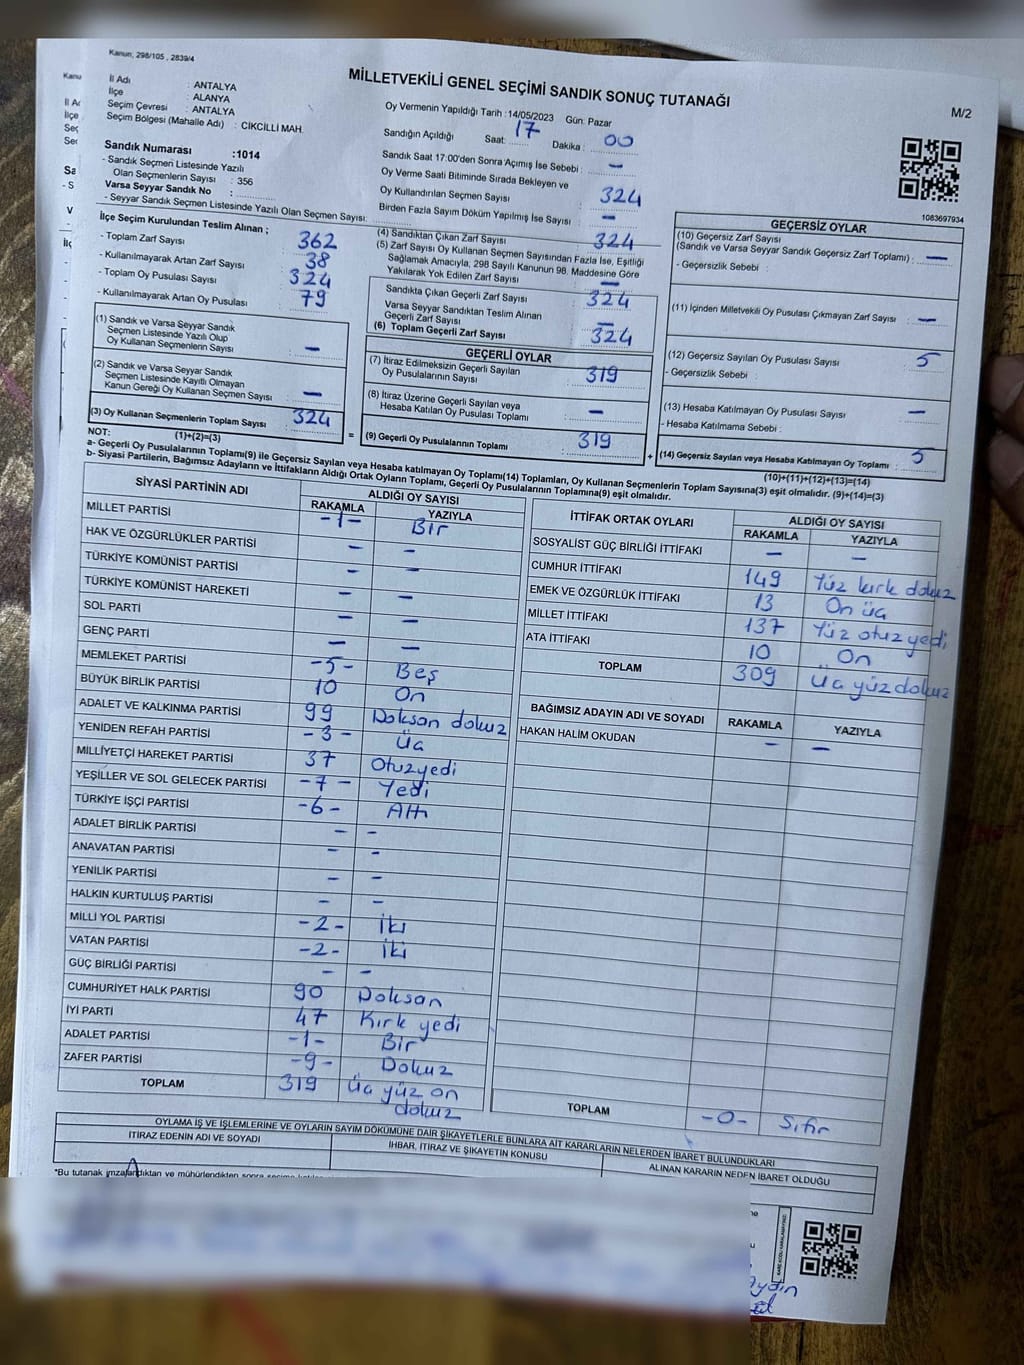 Kanun, 298/105 , 2839/4
MİLLETVEKİLİ GENEL SEÇİMİ SANDIK SONUÇ TUTANAĞI
M/2
İl Adı : ANTALYA
İlçe : ALANYA
Seçim Çevresi : ANTALYA
Seçim Bölgesi (Mahalle Adı) : CİKCİLLİ MAH.
Sandık Numarası :1014
- Sandık Seçmen Listesinde Yazılı
Olan Seçmenlerin Sayısı : 356
Varsa Seyyar Sandık No :
- Seyyar Sandık Seçmen Listesinde Yazılı Olan Seçmen Sayısı:
Oy Vermenin Yapıldığı Tarih :14/05/2023 Gün: Pazar
Sandığın Açıldığı Saat: 17 Dakika : 00
Sandık Saat 17:00'den Sonra Açımış İse Sebebi : -
Oy Verme Saati Bitiminde Sırada Bekleyen ve
Oy Kullandırılan Seçmen Sayısı 324
Birden Fazla Sayım Döküm Yapılmış İse Sayısı -
1083697934
İlçe Seçim Kurulundan Teslim Alınan ;
- Toplam Zarf Sayısı 362
- Kullanılmayarak Artan Zarf Sayısı 38
- Toplam Oy Pusulası Sayısı 324
- Kullanılmayarak Artan Oy Pusulası 79
(1) Sandık ve Varsa Seyyar Sandık
Seçmen Listesinde Yazılı Olup
Oy Kullanan Seçmenlerin Sayısı -
(2) Sandık ve Varsa Seyyar Sandık
Seçmen Listesinde Kayıtlı Olmayan
Kanun Gereği Oy Kullanan Seçmen Sayısı -
(3) Oy Kullanan Seçmenlerin Toplam Sayısı 324
(4) Sandıktan Çıkan Zarf Sayısı 324
(5) Zarf Sayısı Oy Kullanan Seçmen Sayısından Fazla İse, Eşitliği
Sağlamak Amacıyla, 298 Sayılı Kanunun 98. Maddesine Göre
Yakılarak Yok Edilen Zarf Sayısı -
Sandıkta Çıkan Geçerli Zarf Sayısı 324
Varsa Seyyar Sandıktan Teslim Alınan
Geçerli Zarf Sayısı -
(6) Toplam Geçerli Zarf Sayısı 324
GEÇERLİ OYLAR
(7) İtiraz Edilmeksizin Geçerli Sayılan
Oy Pusulalarının Sayısı 319
(8) İtiraz Üzerine Geçerli Sayılan veya
Hesaba Katılan Oy Pusulası Toplamı -
= (9) Geçerli Oy Pusulalarının Toplamı 319
GEÇERSİZ OYLAR
(10) Geçersiz Zarf Sayısı
(Sandık ve Varsa Seyyar Sandık Geçersiz Zarf Toplamı) : -
- Geçersizlik Sebebi :
(11) İçinden Milletvekili Oy Pusulası Çıkmayan Zarf Sayısı : -
(12) Geçersiz Sayılan Oy Pusulası Sayısı 5
- Geçersizlik Sebebi :
(13) Hesaba Katılmayan Oy Pusulası Sayısı -
- Hesaba Katılmama Sebebi :
+ (14) Geçersiz Sayılan veya Hesaba Katılmayan Oy Toplamı 5
NOT: (1)+(2)=(3)
(10)+(11)+(12)+(13)=(14)
a- Geçerli Oy Pusulalarının Toplamı(9) ile Geçersiz Sayılan veya Hesaba katılmayan Oy Toplamı(14) Toplamları, Oy Kullanan Seçmenlerin Toplam Sayısına(3) eşit olmalıdır. (9)+(14)=(3)
b- Siyasi Partilerin, Bağımsız Adayların ve İttifakların Aldığı Ortak Oyların Toplamı, Geçerli Oy Pusulalarının Toplamına(9) eşit olmalıdır.
SİYASİ PARTİNİN ADI ALDIĞI OY SAYISI
RAKAMLA YAZIYLA
MİLLET PARTİSİ -1- Bir
HAK VE ÖZGÜRLÜKLER PARTİSİ - -
TÜRKİYE KOMÜNİST PARTİSİ - -
TÜRKİYE KOMÜNİST HAREKETİ - -
SOL PARTİ - -
GENÇ PARTİ - -
MEMLEKET PARTİSİ -5- Beş
BÜYÜK BİRLİK PARTİSİ 10 On
ADALET VE KALKINMA PARTİSİ 99 Doksan dokuz
YENİDEN REFAH PARTİSİ -3- Üç
MİLLİYETÇİ HAREKET PARTİSİ 37 Otuzyedi
YEŞİLLER VE SOL GELECEK PARTİSİ -7- Yedi
TÜRKİYE İŞÇİ PARTİSİ -6- Altı
ADALET BİRLİK PARTİSİ - -
ANAVATAN PARTİSİ - -
YENİLİK PARTİSİ - -
HALKIN KURTULUŞ PARTİSİ - -
MİLLİ YOL PARTİSİ -2- İki
VATAN PARTİSİ -2- İki
GÜÇ BİRLİĞİ PARTİSİ - -
CUMHURİYET HALK PARTİSİ 90 Doksan
İYİ PARTİ 47 Kırk yedi
ADALET PARTİSİ -1- Bir
ZAFER PARTİSİ -9- Dokuz
TOPLAM 319 Üç yüz on
dokuz
İTTİFAK ORTAK OYLARI ALDIĞI OY SAYISI
RAKAMLA YAZIYLA
SOSYALİST GÜÇ BİRLİĞİ İTTİFAKI - -
CUMHUR İTTİFAKI 149 Yüz kırk dokuz
EMEK VE ÖZGÜRLÜK İTTİFAKI 13 On üç
MİLLET İTTİFAKI 137 Yüz otuz yedi
ATA İTTİFAKI 10 On
TOPLAM 309 Üç yüz dokuz
BAĞIMSIZ ADAYIN ADI VE SOYADI RAKAMLA YAZIYLA
HAKAN HALİM OKUDAN - -
TOPLAM -0- Sıfır
OYLAMA İŞ VE İŞLEMLERİNE VE OYLARIN SAYIM DÖKÜMÜNE DAİR ŞİKAYETLERLE BUNLARA AİT KARARLARIN NELERDEN İBARET BULUNDUKLARI
İTİRAZ EDENİN ADI VE SOYADI İHBAR, İTİRAZ VE ŞİKAYETİN KONUSU ALINAN KARARIN NEDEN İBARET OLDUĞU
*Bu tutanak imzalandıktan ve mühürlendikten sonra